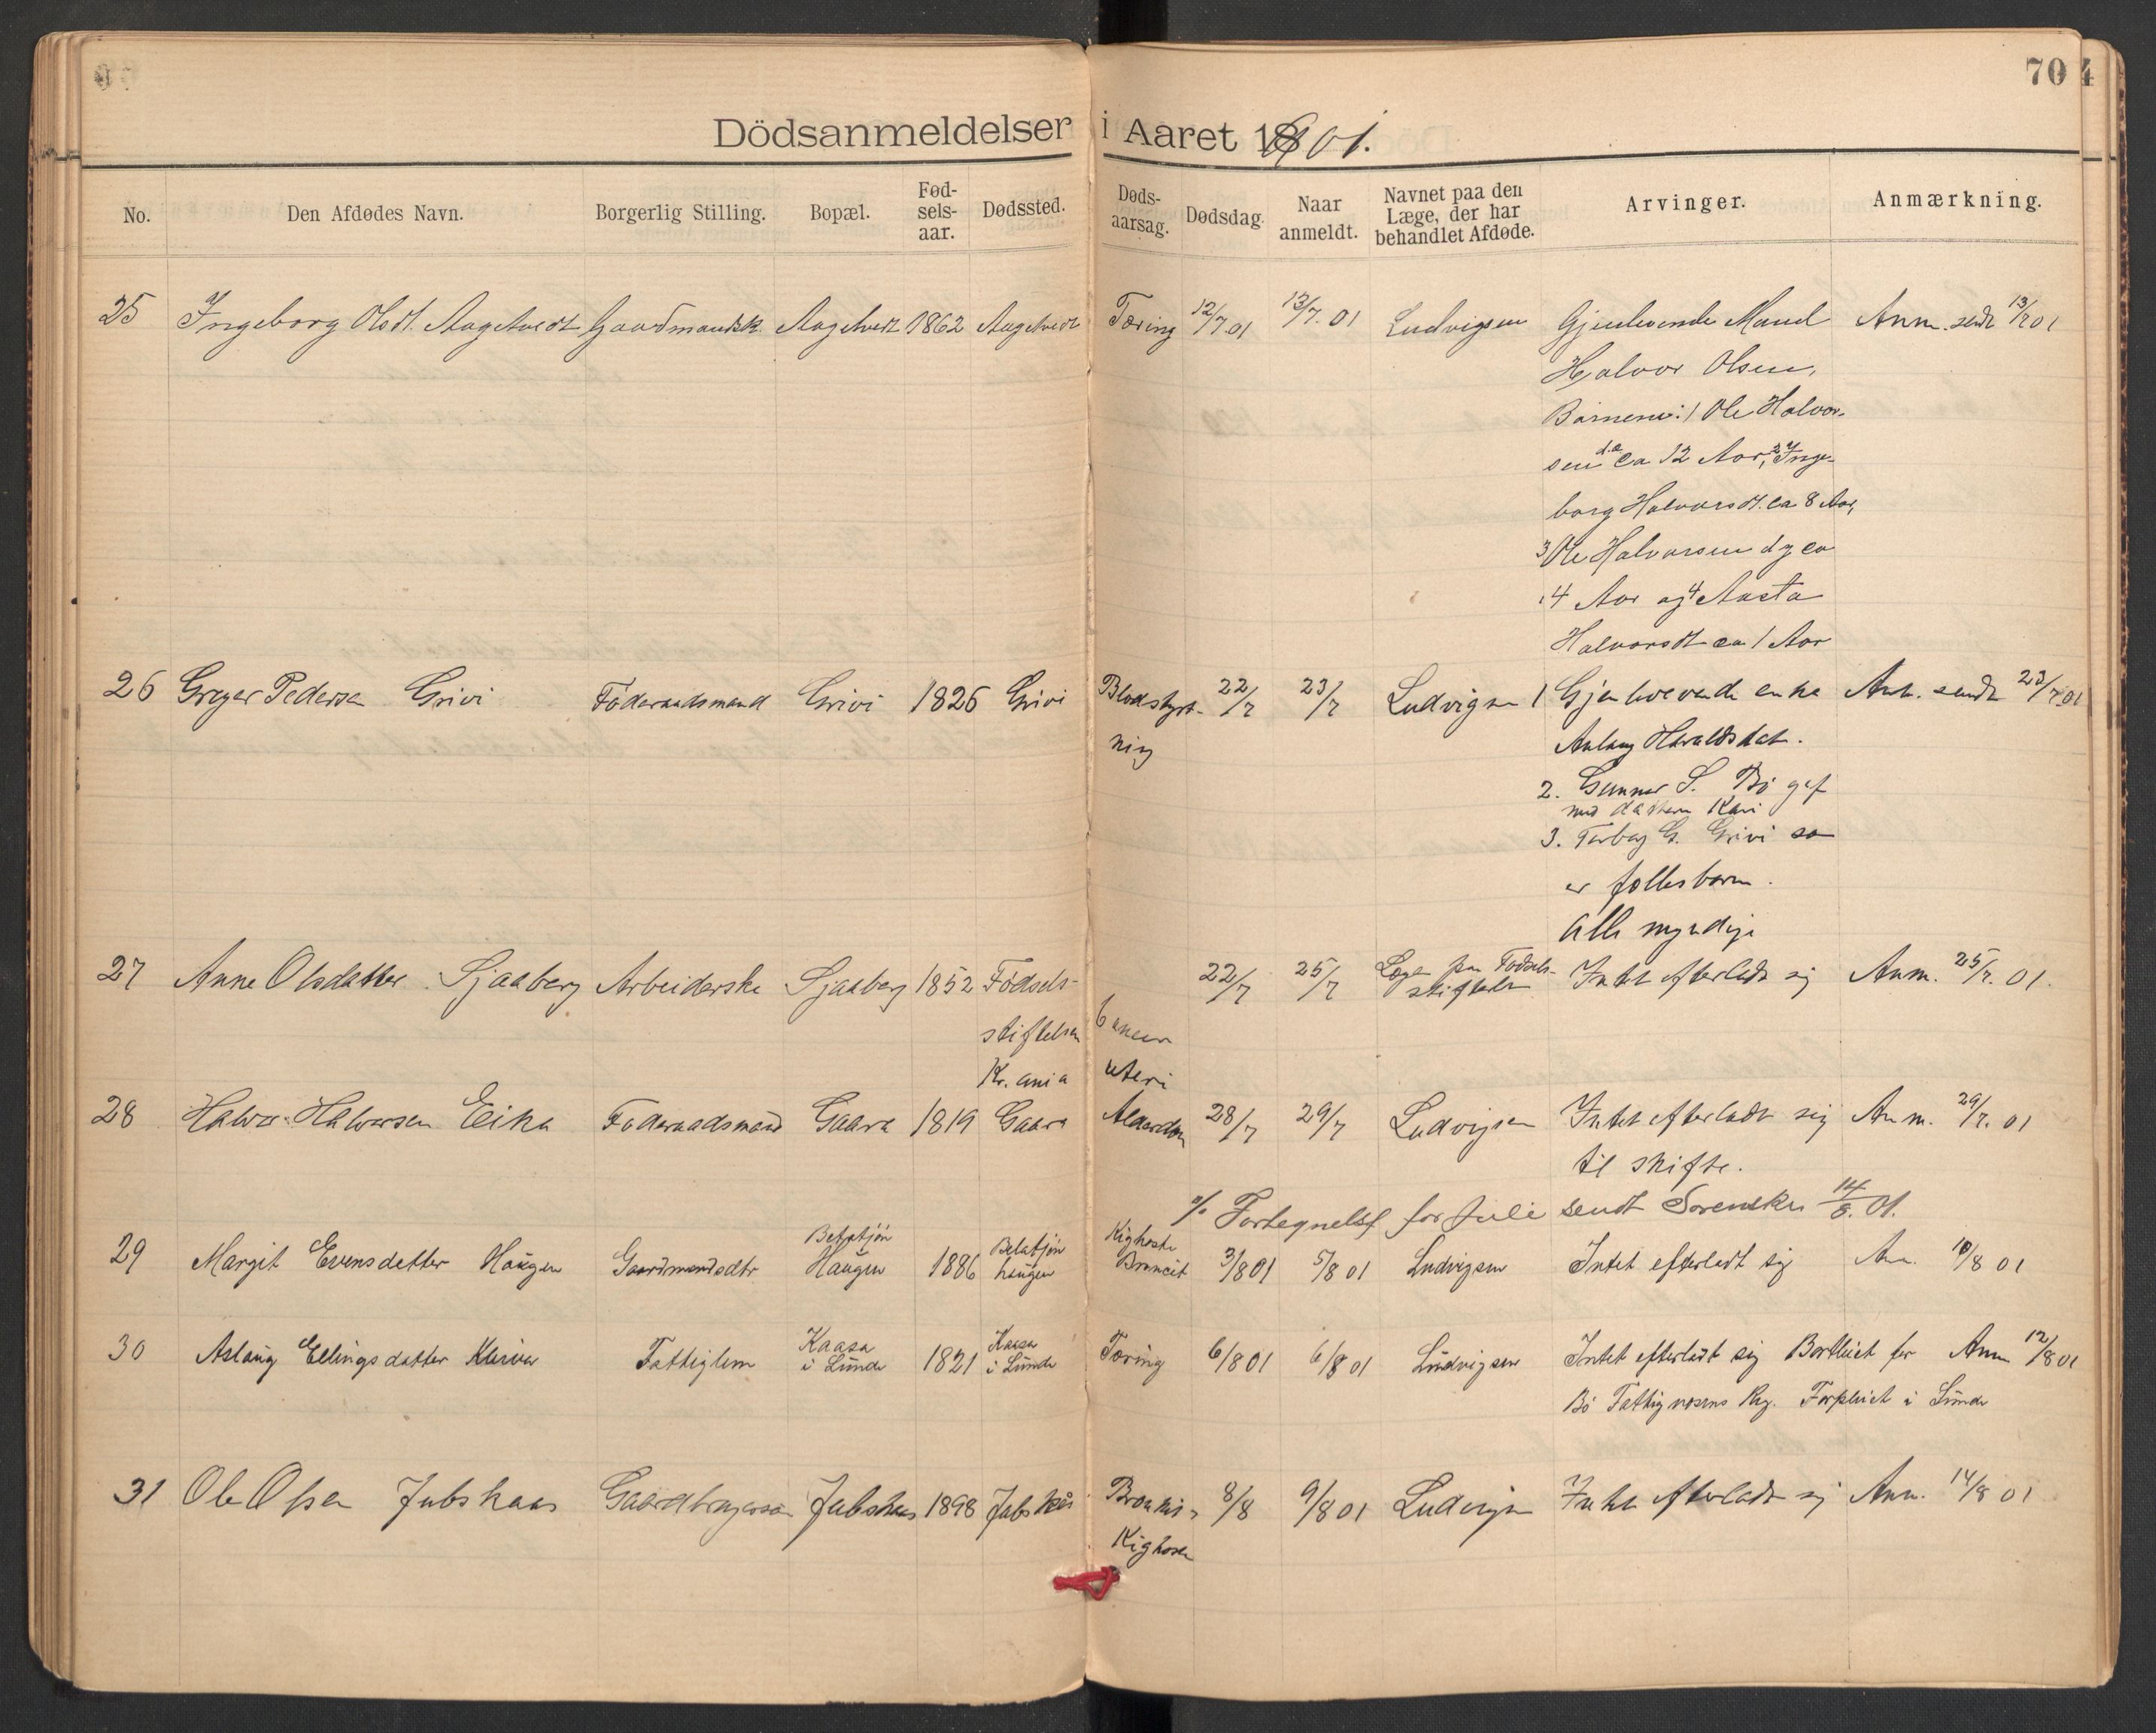 70
4
Dödsanmeldelser i Aaret 1901.
No. Den Afdødes Navn. Borgerlig Stilling. Bopæl. Fød-sels-aar. Dødssted. Døds-aarsag. Dødsdag. Naar anmeldt. Navnet paa den Læge, der har behandlet Afdøde. Arvinger. Anmærkning.
25 Ingeborg Olsdt. Aagetvedt Gaardmandsk. Aagetvedt 1862 Aagetvedt Tæring 12/7.01 13/7.01 Ludvigsen Gjenlevende Mand Anm. sendt 13/7 01
Halvor Olsen,
Børnene: 1 Ole Halvor-
sen d.e. ca 12 Aar, 2 Inge-
borg Halvorsdt. ca 8 Aar,
3 Ole Halvorsen d.y. ca
4 Aar og 4 Aasta
Halvorsdt ca 1 Aar
26 Greger Pedersen Grivi Föderaadsmand Grivi 1826 Grivi Blodstyrt- 22/7 23/7 Ludvigsen 1 Gjenlevende enke Anm. sendt 23/7.01
ning Aslaug Haraldsdat.
2. Gunnar S. Bö gif
med datteren Kari
3. Torbjg G. Grivi so
er fællesbarn.
alle myndige
27 Anne Olsdatter Sjaaberg Arbeiderske Sjaaberg 1852 Födsels- 22/7 25/7 Lægen paa Födsels- Intet efterladt sig Anm. 25/7. 01.
stiftelsen Cancer stiftelsen
Kr.ania uteri
28 Halvor Halvorsen Eika Föderaadsmand Gaara 1819 Gaara Alderdom 28/7 29/7 Ludvigsen Intet efterladt sig Anm. 29/7. 01
til skifte.
% Fortegnelse for Juli sendt Sorenskr. 14/8. 01.
29 Margit Evensdatter Haugen Gaardmandsdtr Haugen 1886 haugen Kighoste Broncit 3/8 01 5/8 01 Ludvigsen Intet efterladt sig An. 10/8 01
30 Aslaug Ellingsdatter Kleiva Fattiglem Kaasa i Lunde 1821 Kaasa i Lunde Tæring 6/8 01 6/8 01 Ludvigsen Intet efterladt sig Bortleiet for Anm 12/8 01
Bö Fattigvæsens Reg. Forpleiet i Lunde
31 Ole Olsen Jubskaas Gaardbrugersøn Jubskaas 1898 Jubskås 8/8 9/8 01 Ludvigsen Intet efterladt sig Anm. 14/8 01
Kighoste